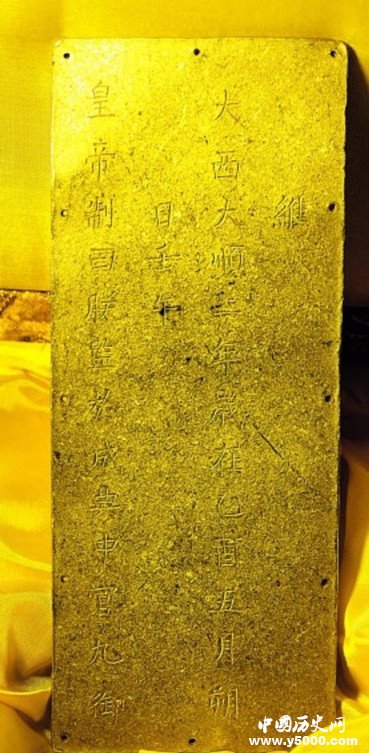 維
大西大順二年歲在乙酉五月朔
日壬午
皇帝制曰朕監於成典中宮九御
中國历史网
www.y5000.com